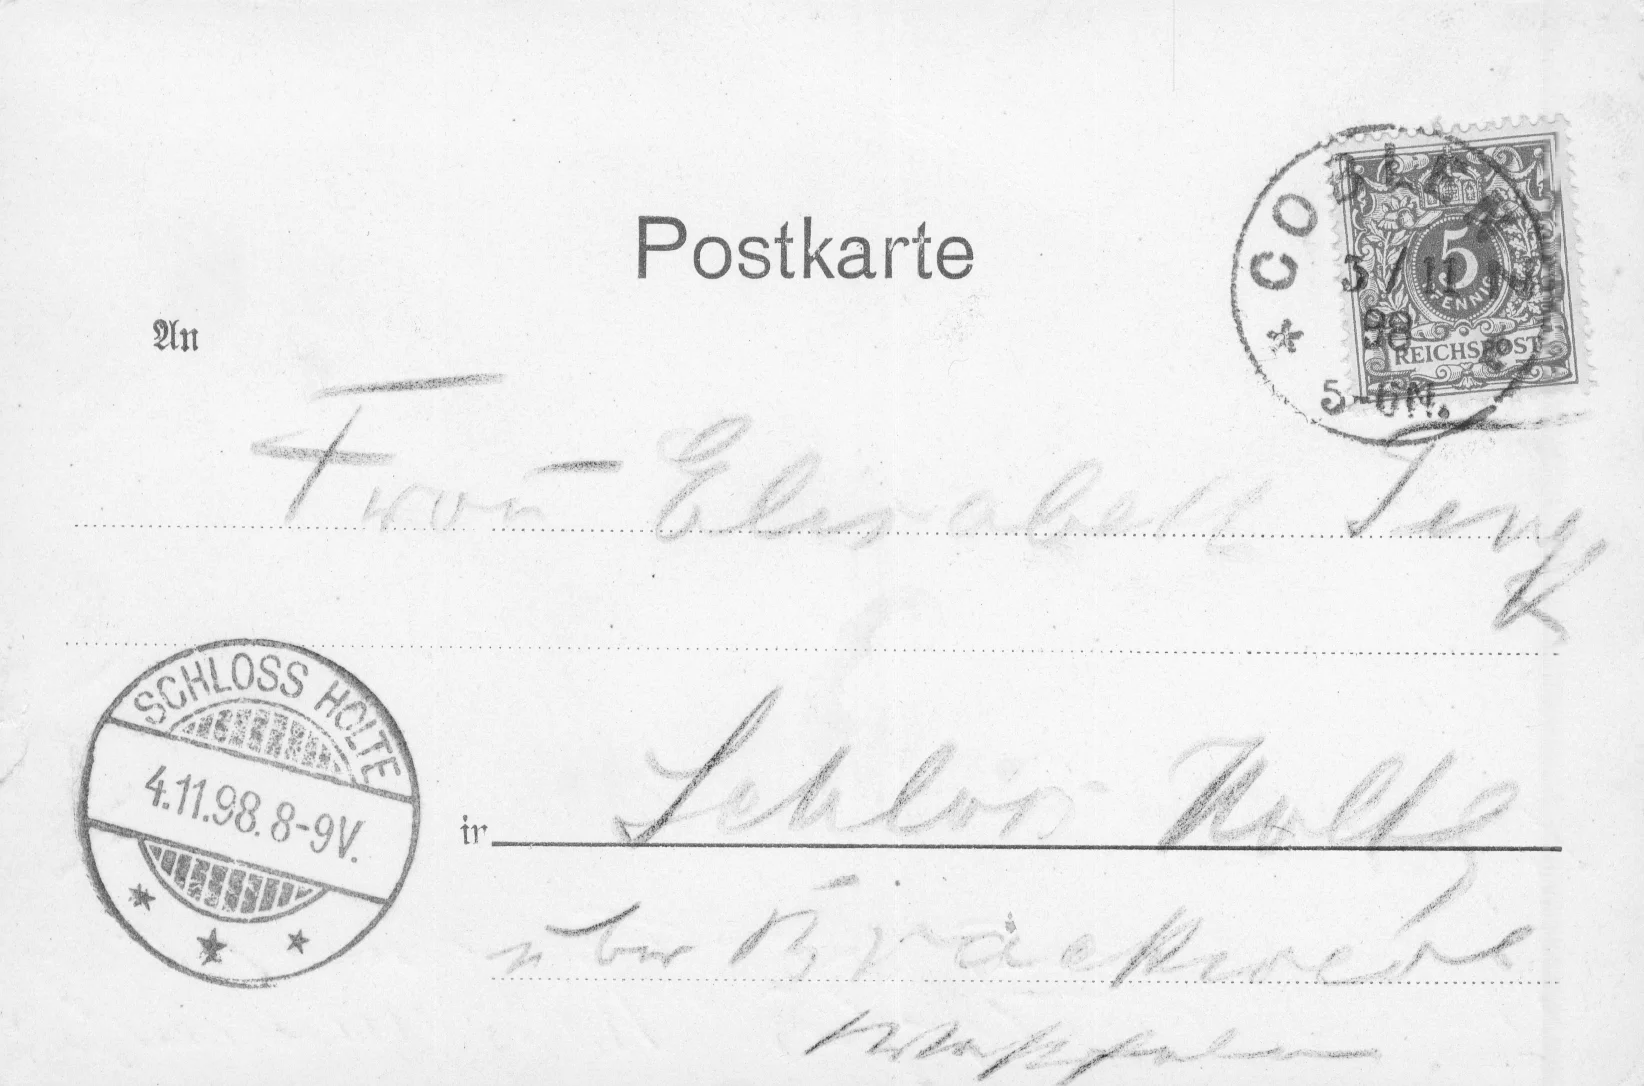 Postkarte
COBLENZ
3/11
98
5-6N.
5
PFENNIG
REICHSPOST
An
Frau Elisabeth Tenge
SCHLOSS HOLTE
4.11.98. 8-9V.
in Schloss Holte
über Brackwede
Westfalen